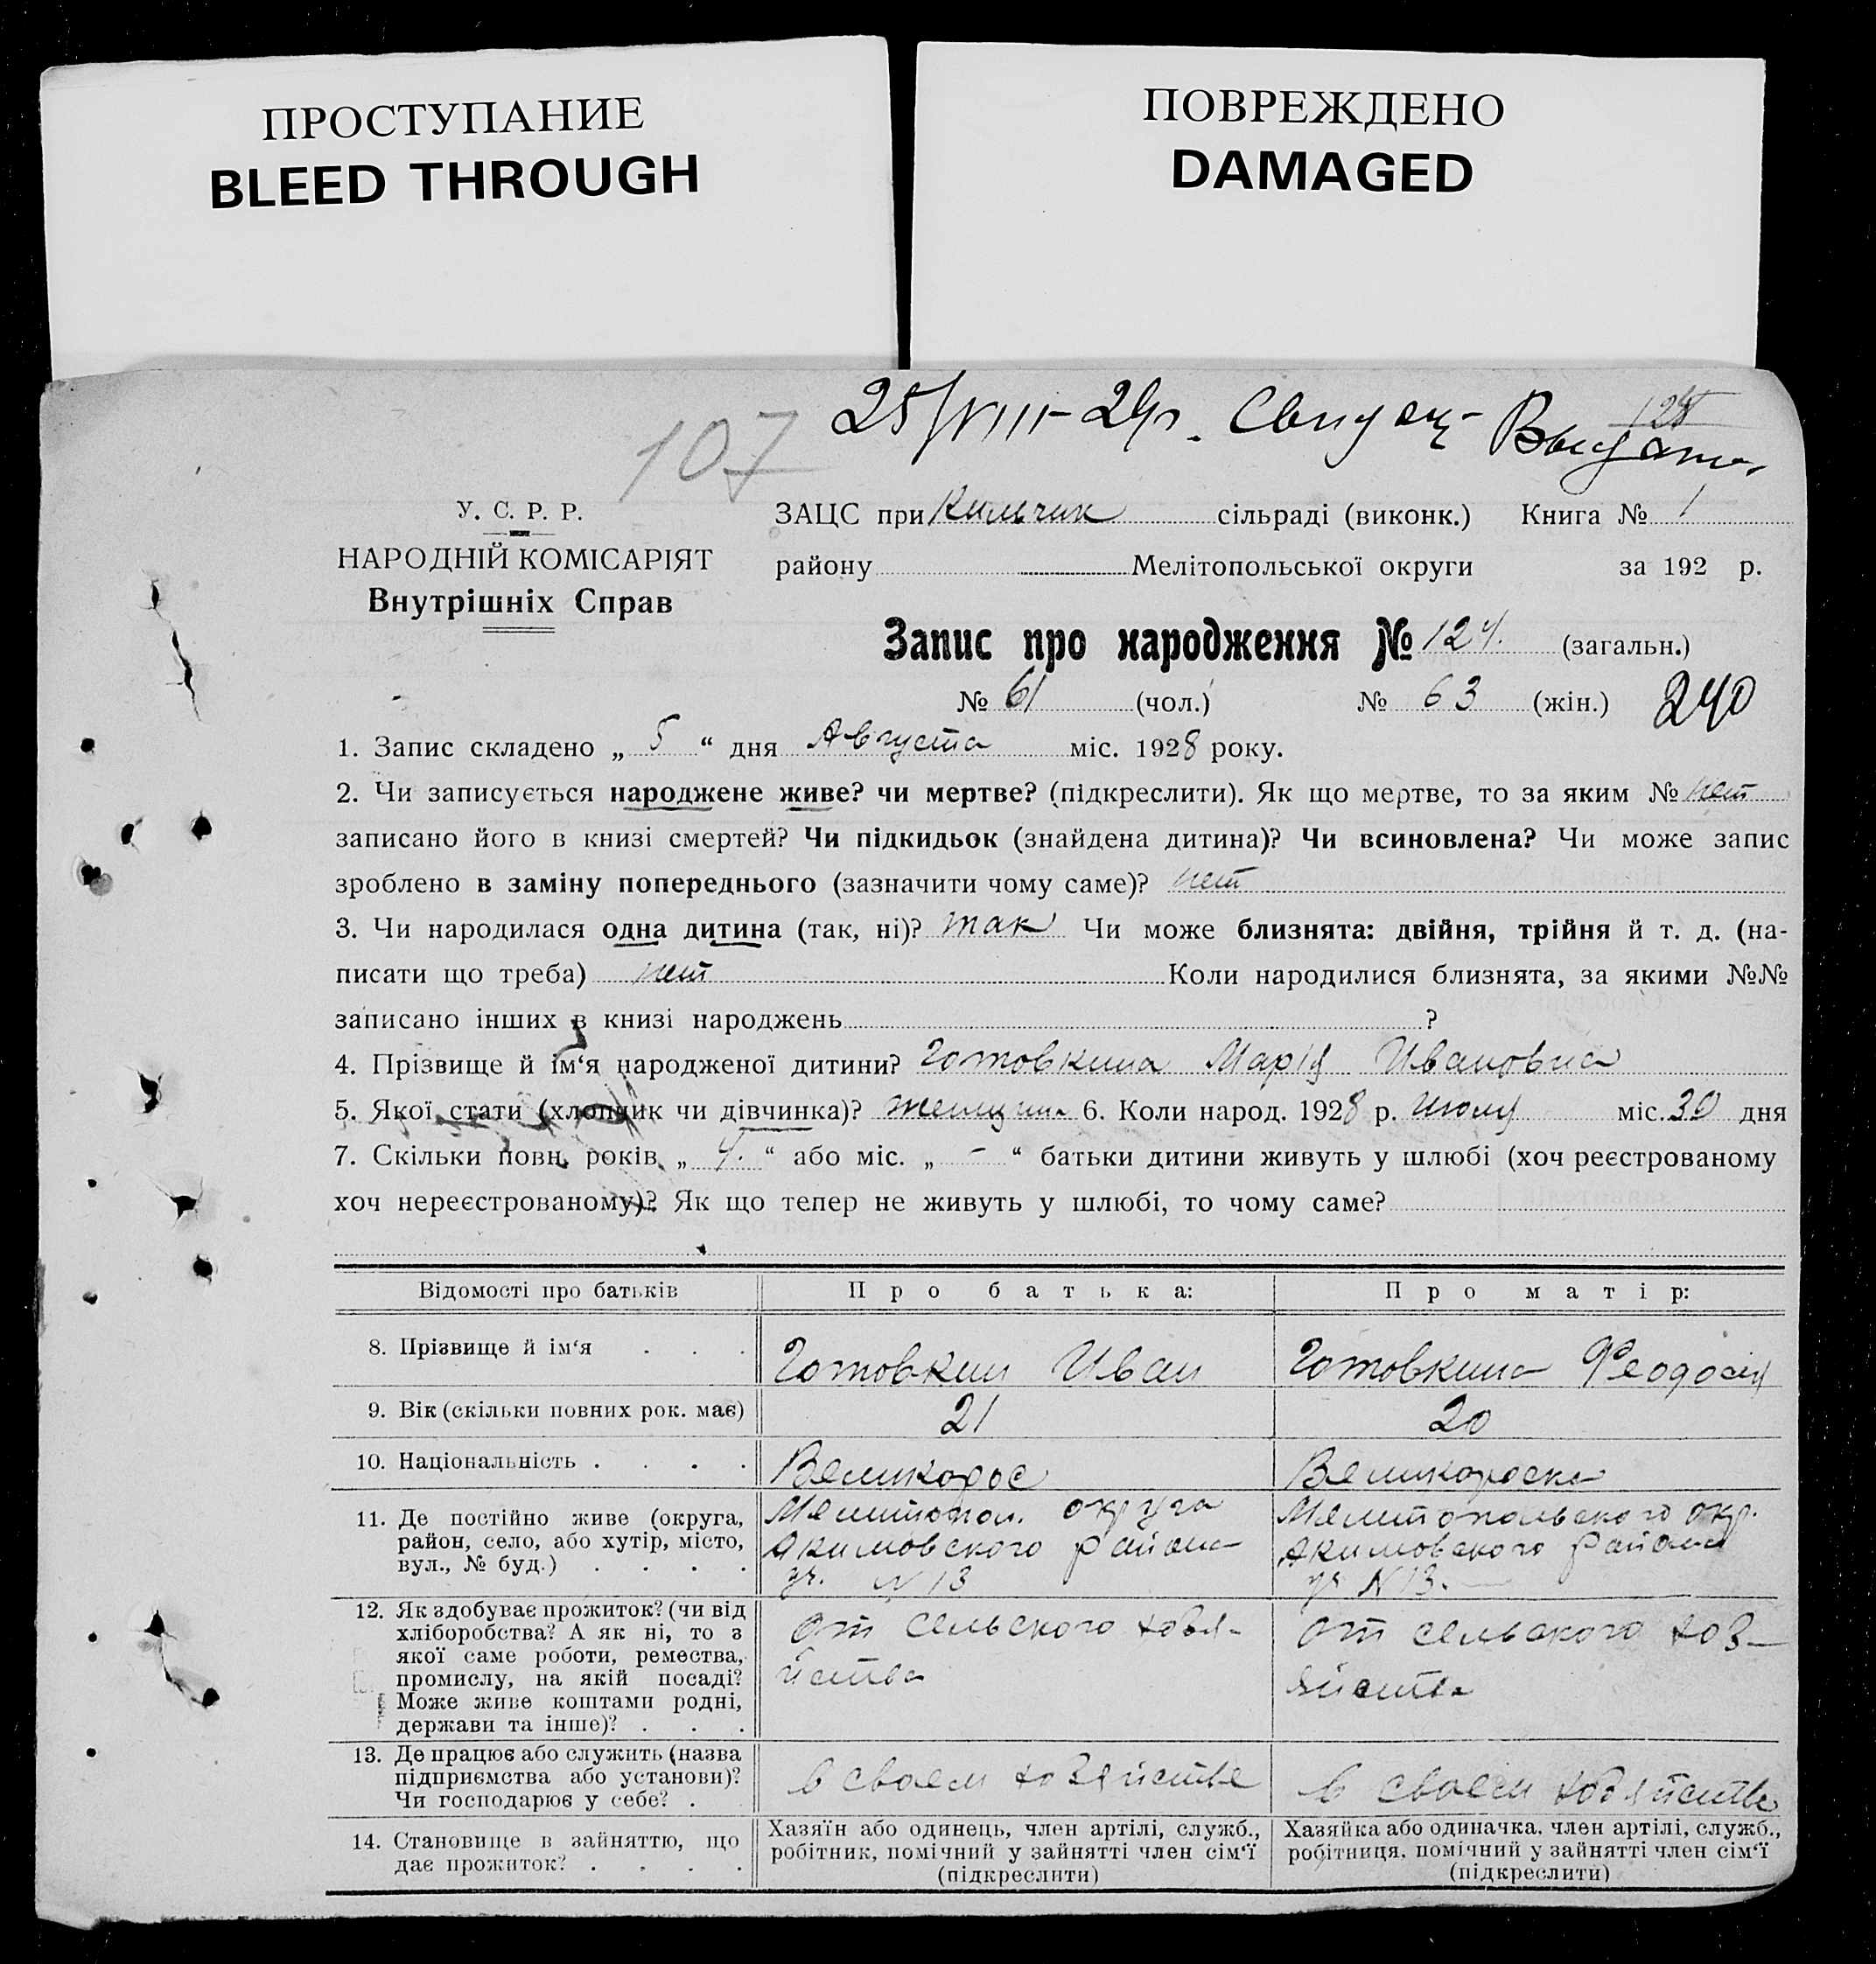 ПРОСТУПАНИЕ
BLEED THROUGH
ПОВРЕЖДЕНО
DAMAGED
107 25/VIII-29г. Свидет- Выдано.
У. С. Р. Р.
НАРОДНІЙ КОМІСАРІЯТ
Внутрішніх Справ
ЗАЦС при Кильчик сільраді (виконк.) Книга № 1
району Мелітопольської округи за 192 р.
Запис про народження № 124. (загальн.)
№ 61 (чол.) № 63 (жін.) 240
1. Запис складено „ 5 “ дня Августа міс. 1928 року.
2. Чи записується народжене живе? чи мертве? (підкреслити). Як що мертве, то за яким № нет
записано його в книзі смертей? Чи підкидьок (знайдена дитина)? Чи всиновлена? Чи може запис
зроблено в заміну попереднього (зазначити чому саме)? нет
3. Чи народилася одна дитина (так, ні)? так Чи може близнята: двійня, трійня й т. д. (на-
писати що треба) нет Коли народилися близнята, за якими №№
записано інших в книзі народжень ?
4. Прізвище й ім‘я народженої дитини? Готовкина Марія Ивановна
5. Якої стати (хлопчик чи дівчинка)? женщина 6. Коли народ. 1928 р. Июля міс. 30 дня
7. Скільки повн. років „ 4. “ або міс. „ - “ батьки дитини живуть у шлюбі (хоч реєстрованому
хоч нереєстрованому)? Як що тепер не живуть у шлюбі, то чому саме?
Відомості про батьків Про батька: Про матір:
8. Прізвище й ім‘я . . . Готовкин Иван Готовкина Феодосия
9. Вік (скільки повних рок. має) 21 20
10. Національність . . . . Великорос Великороска
11. Де постійно живе (округа,
район, село, або хутір, місто,
вул., № буд.) . . . .
Мелитопол. округа
Акимовского района
уч. N 13
Мелитопольского окр.
Акимовского района
уч N 13.
12. Як здобуває прожиток? (чи від
хліборобства? А як ні, то з
якої саме роботи, ремества,
промислу, на якій посаді?
Може живе коштами родні,
держави та інше)? . . .
От сельского хозя-
йства
От сельского хоз-
яйства
13. Де працює або служить (назва
підприємства або установи)?
Чи господарює у себе? .
в своем хозяйстве
в своем хозяйстве
14. Становище в зайняттю, що
дає прожиток? . . . .
Хазяїн або одинець, член артілі, служб.,
робітник, помічний у зайнятті член сім‘ї
(підкреслити)
Хазяйка або одиначка, член артілі, служб.,
робітниця, помічний у зайнятті член сім‘ї
(підкреслити)